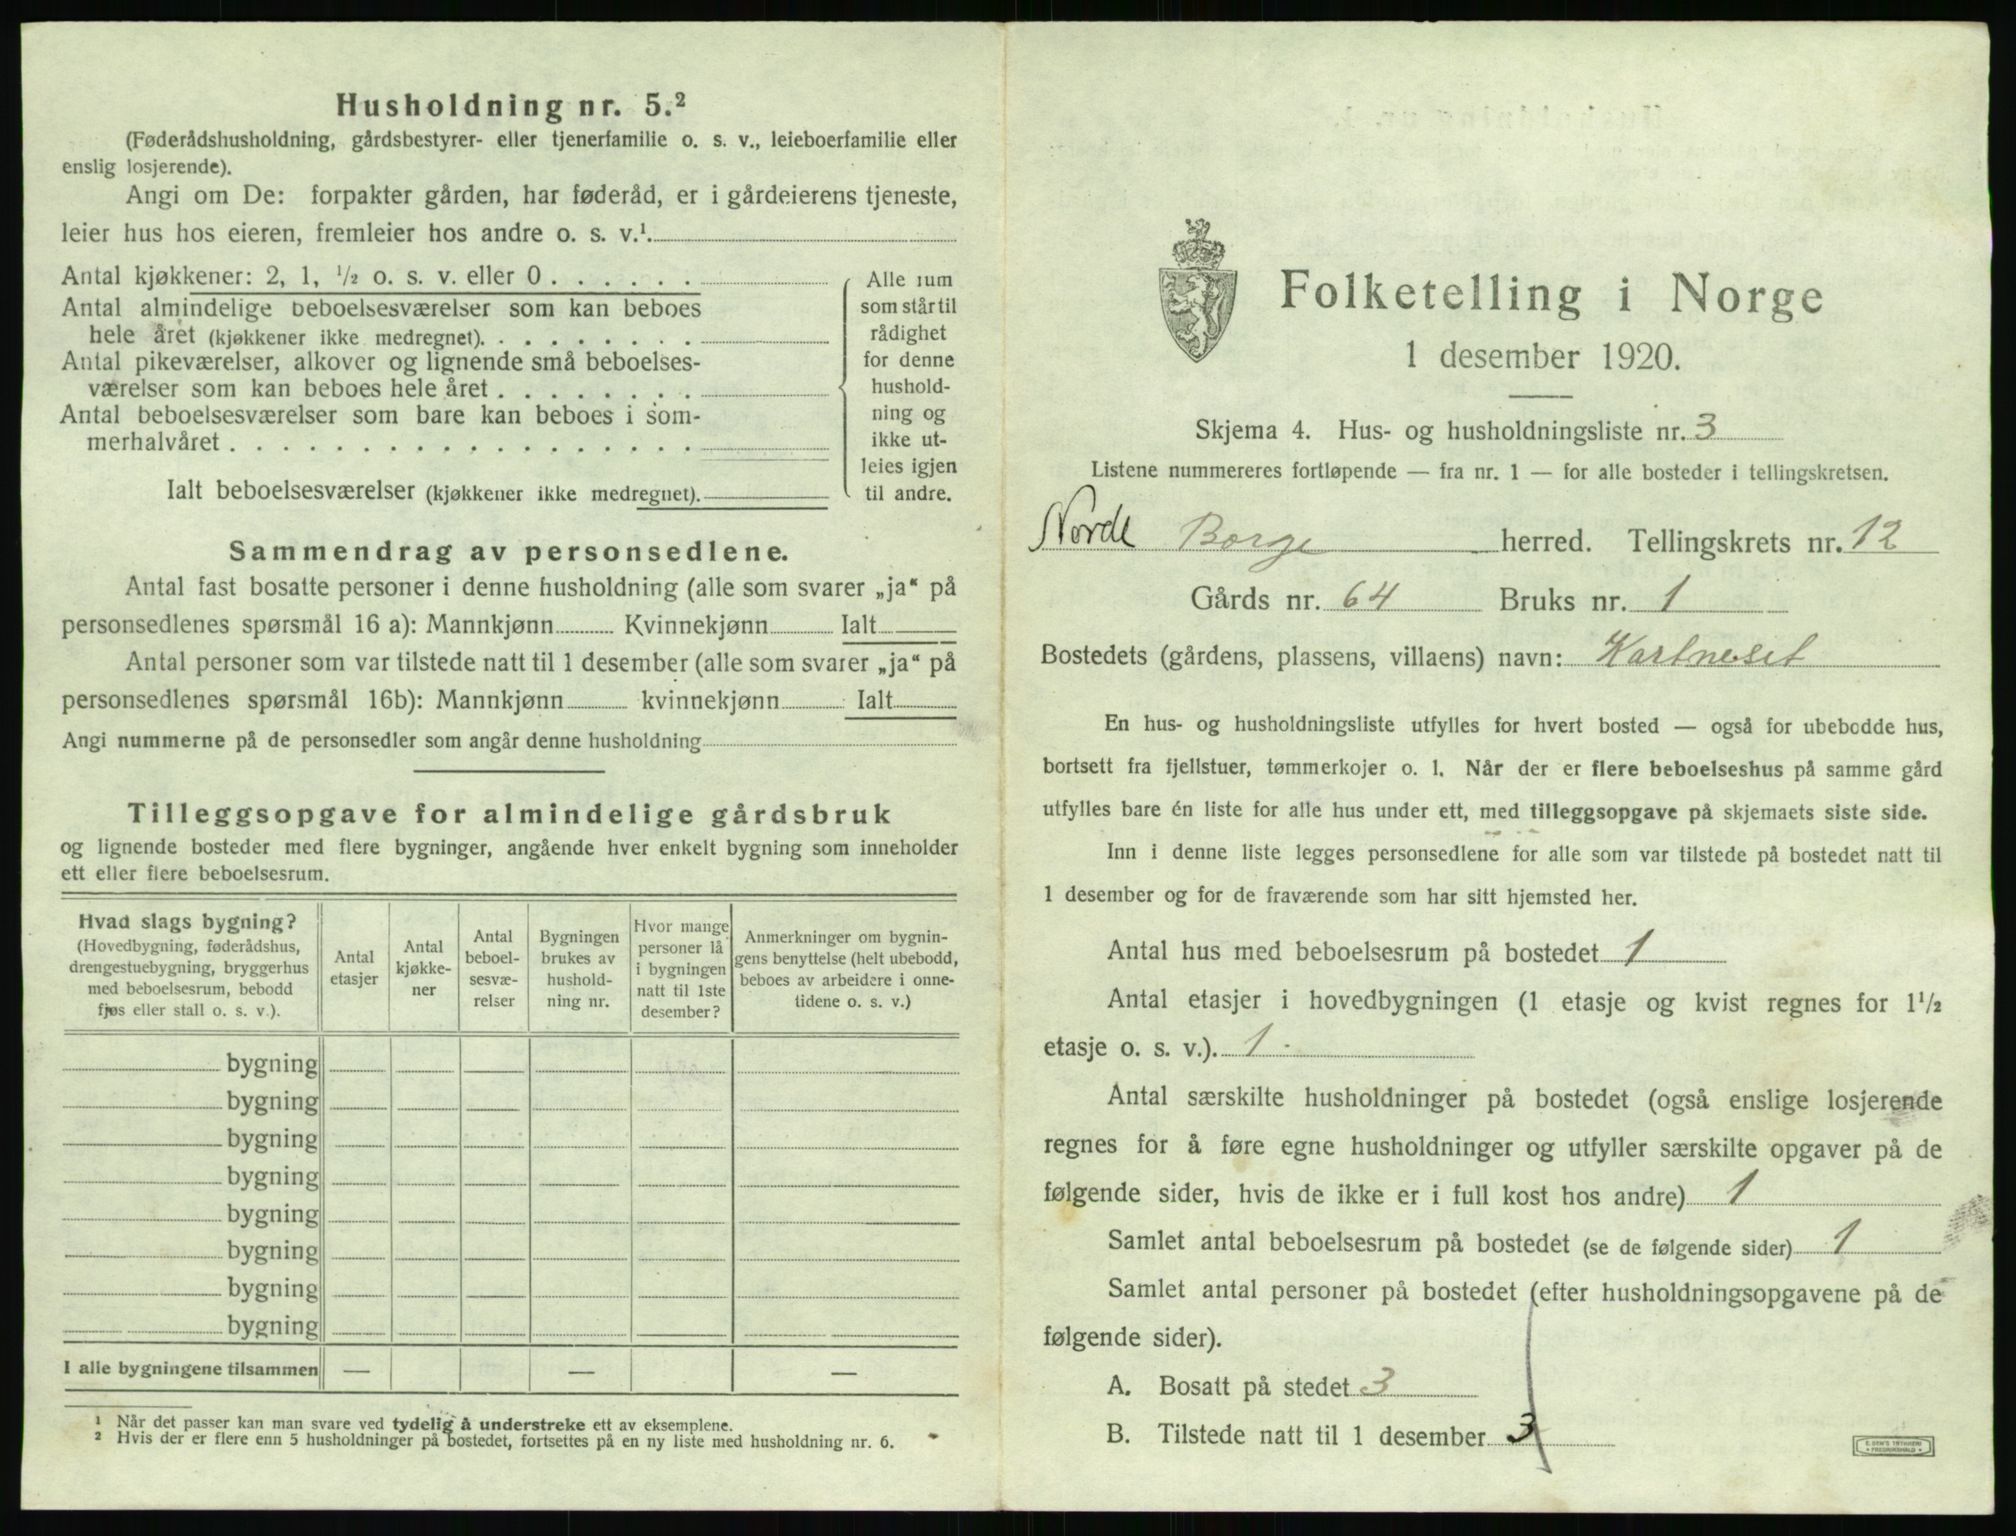 Husholdning nr. 5.²
(Føderådshusholdning, gårdsbestyrer- eller tjenerfamilie o. s. v., leieboerfamilie eller
enslig losjerende).
Angi om De: forpakter gården, har føderåd, er i gårdeierens tjeneste,
leier hus hos eieren, fremleier hos andre o. s. v.¹.
Antal kjøkkener: 2, 1, ½ o. s. v. eller 0 . . . . . .
Antal almindelige beboelsesværelser som kan beboes
hele året (kjøkkener ikke medregnet). . . . . . . . .
Antal pikeværelser, alkover og lignende små beboelses-
værelser som kan beboes hele året . . . . . . . .
Antal beboelsesværelser som bare kan beboes i som-
merhalvåret . . . . . . . . . . . . . . . . . .
Ialt beboelsesværelser (kjøkkener ikke medregnet).
Alle rum
som står til
rådighet
for denne
hushold-
ning og
ikke ut-
leies igjen
til andre.
Sammendrag av personsedlene.
Antal fast bosatte personer i denne husholdning (alle som svarer „ja“ på
personsedlenes spørsmål 16 a): Mannkjønn Kvinnekjønn Ialt
Antal personer som var tilstede natt til 1 desember (alle som svarer „ja“ på
personsedlenes spørsmål 16b): Mannkjønn kvinnekjønn Ialt
Angi nummerne på de personsedler som angår denne husholdning
Tilleggsopgave for almindelige gårdsbruk
og lignende bosteder med flere bygninger, angående hver enkelt bygning som inneholder
ett eller flere beboelsesrum.
Hvad slags bygning?
(Hovedbygning, føderådshus,
drengestuebygning, bryggerhus
med beboelsesrum, bebodd
fjøs eller stall o. s. v.).
Antal
etasjer
Antal
kjøkke-
ner
Antal
beboel-
sesvæ-
relser
Bygningen
brukes av
hushold-
ning nr.
Hvor mange
personer lå
i bygningen
natt til 1ste
desember?
Anmerkninger om bygnin-
gens benyttelse (helt ubebodd,
beboes av arbeidere i onne-
tidene o. s. v.)
bygning
bygning
bygning
bygning
bygning
bygning
bygning
bygning
I alle bygningene tilsammen — — —
¹ Når det passer kan man svare ved tydelig å understreke ett av eksemplene.
² Hvis der er flere enn 5 husholdninger på bostedet, fortsettes på en ny liste med husholdning nr. 6.
Folketelling i Norge
1 desember 1920.
Skjema 4. Hus- og husholdningsliste nr. 3
Listene nummereres fortløpende — fra nr. 1 — for alle bosteder i tellingskretsen.
Norde Borge herred. Tellingskrets nr. 12
Gårds nr. 64 Bruks nr. 1
Bostedets (gårdens, plassens, villaens) navn: Kartneset
En hus- og husholdningsliste utfylles for hvert bosted — også for ubebodde hus,
bortsett fra fjellstuer, tømmerkojer o. l. Når der er flere beboelseshus på samme gård
utfylles bare én liste for alle hus under ett, med tilleggsopgave på skjemaets siste side.
Inn i denne liste legges personsedlene for alle som var tilstede på bostedet natt til
1 desember og for de fraværende som har sitt hjemsted her.
Antal hus med beboelsesrum på bostedet 1
Antal etasjer i hovedbygningen (1 etasje og kvist regnes for 1½
etasje o. s. v.). 1
Antal særskilte husholdninger på bostedet (også enslige losjerende
regnes for å føre egne husholdninger og utfyller særskilte opgaver på de
følgende sider, hvis de ikke er i full kost hos andre) 1
Samlet antal beboelsesrum på bostedet (se de følgende sider) 1
Samlet antal personer på bostedet (efter husholdningsopgavene på de
følgende sider).
A. Bosatt på stedet 3
B. Tilstede natt til 1 desember 3